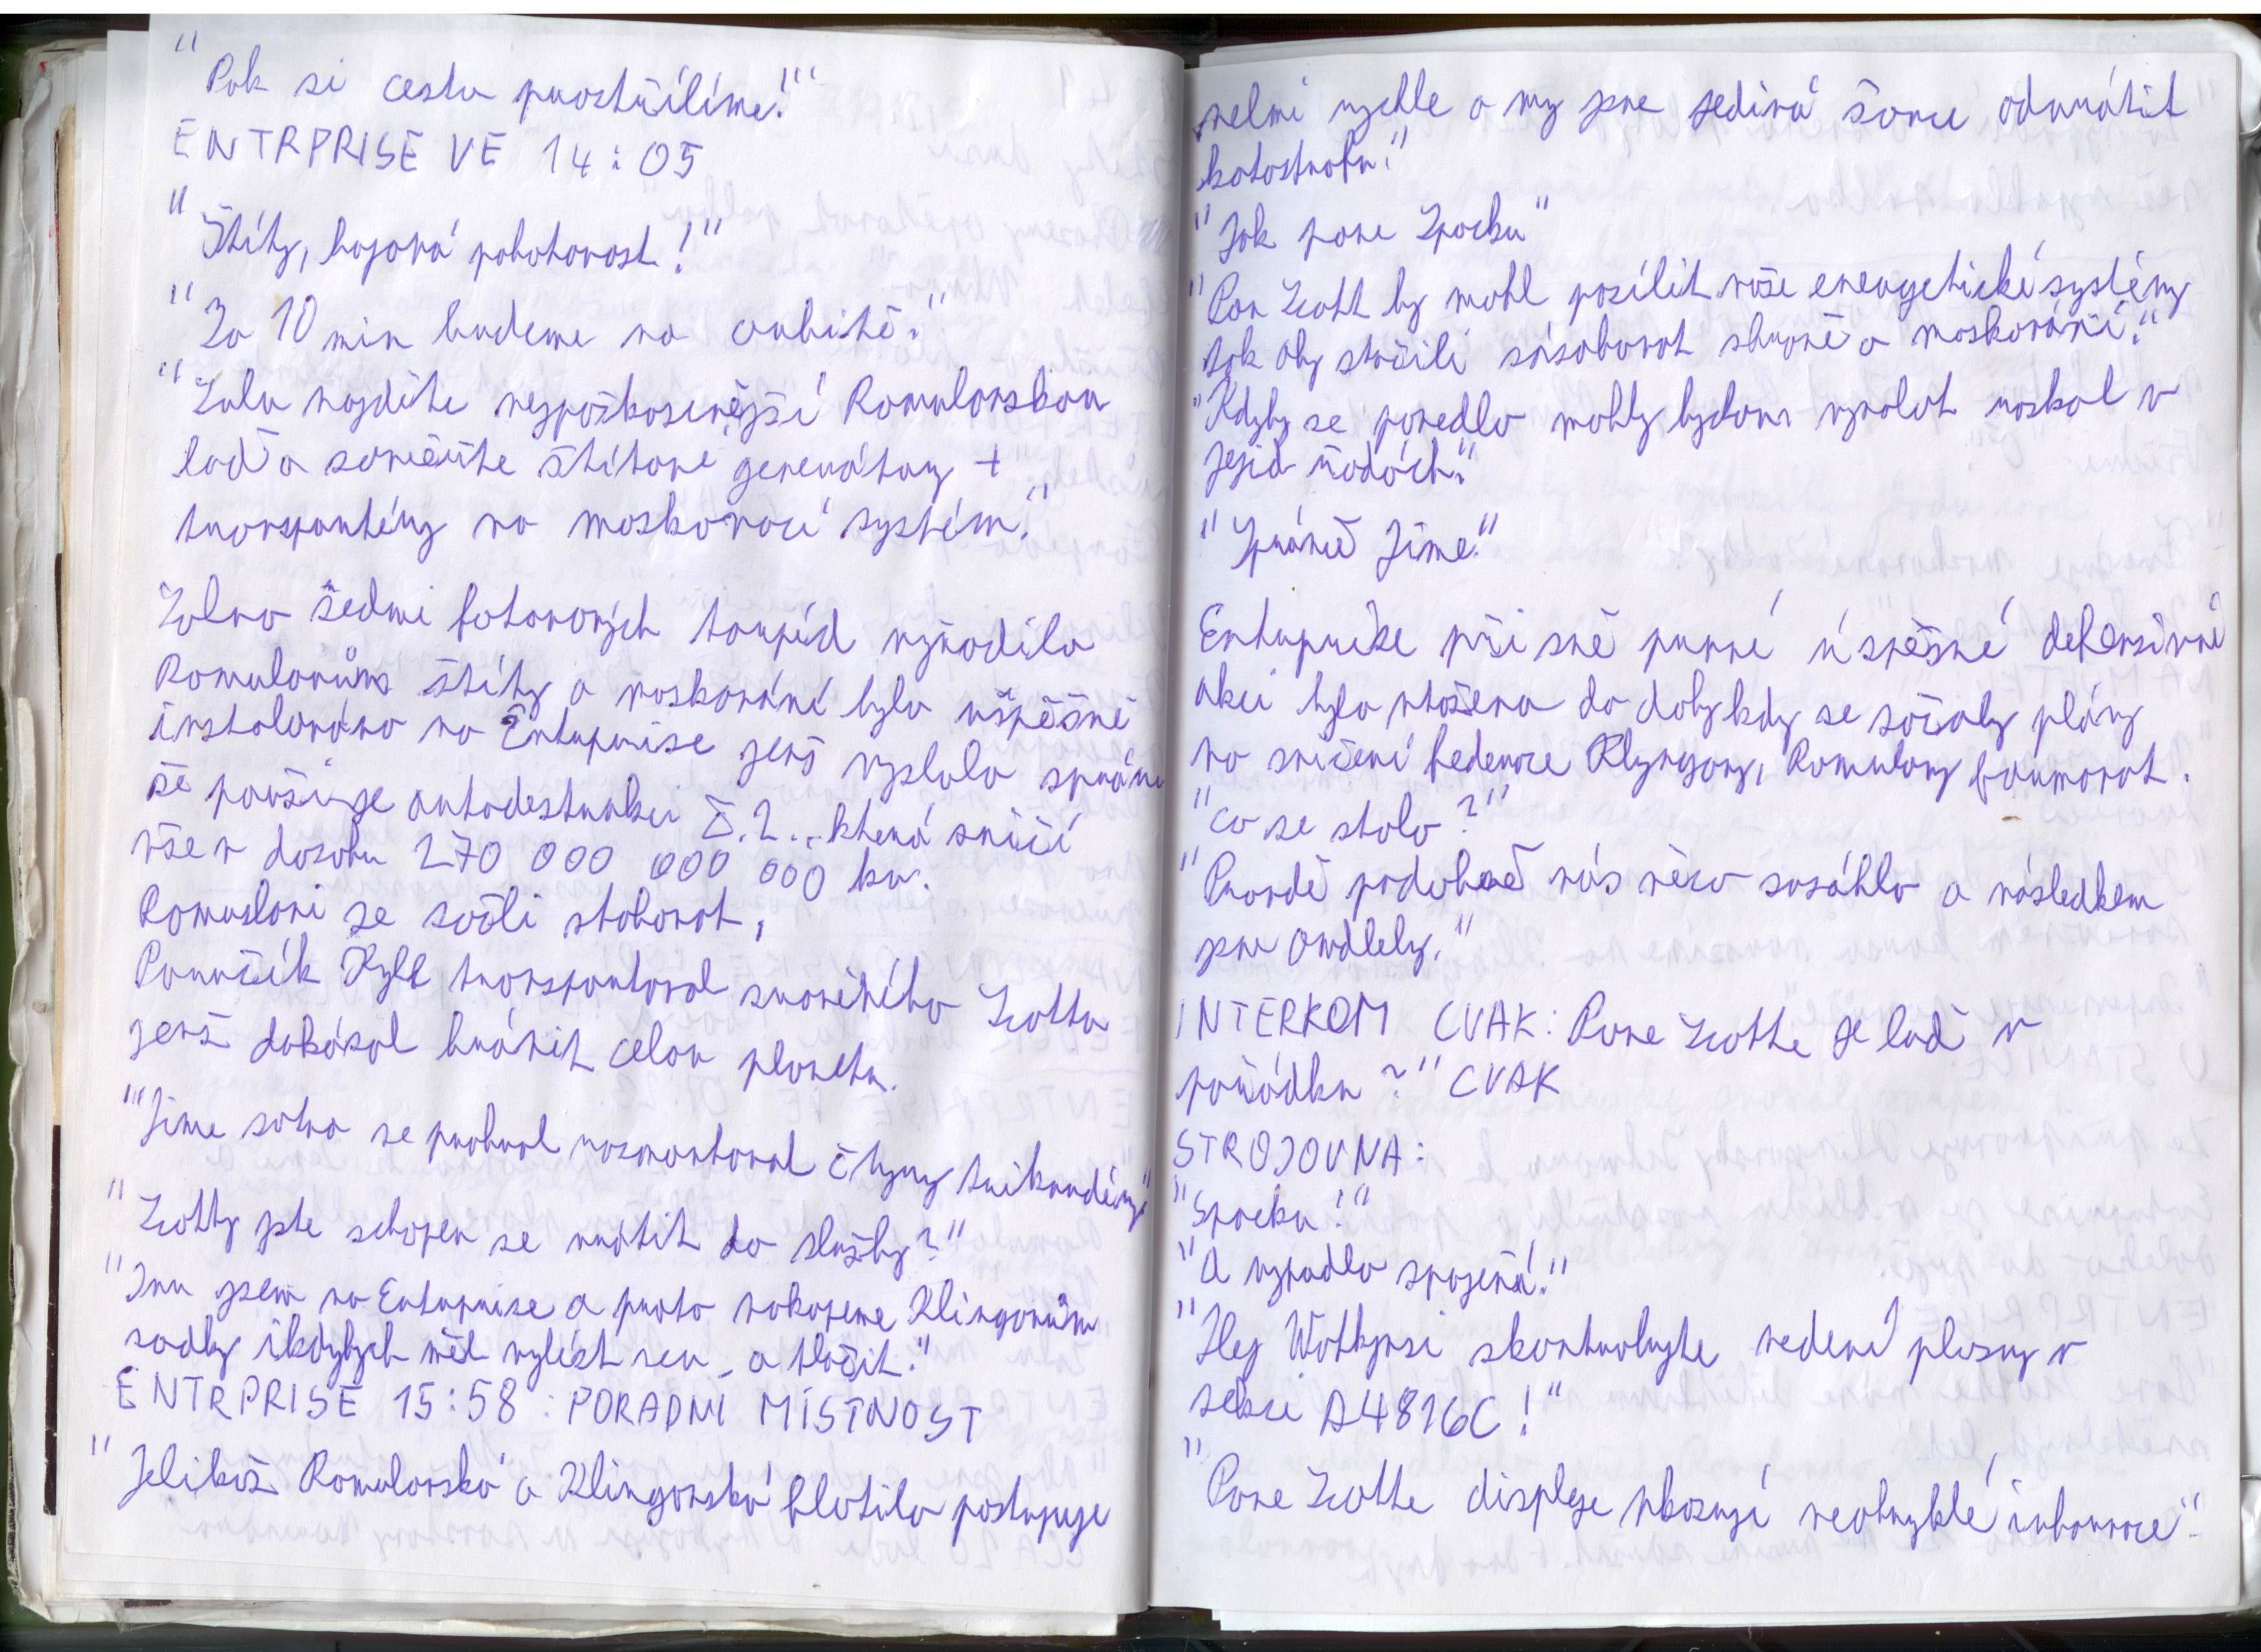 "Pak si cestu prostřílíme!"
ENTRPRISE VE 14:05
"Štíty, bojová pohotovost!"
"Za 10 min budeme na orbitě."
"Zulu najděte nejpoškozenější Romulanskou
loď a zaměřte štítové generátory +
transportéry na maskovací systém."
Salva sedmi fotonových torpéd vyřadila
Romulanům štíty a maskování bylo úspěšně
instalováno na Enterprise jenž vyslala zprávu
že použije autodestrukci č.2... která zničí
vše v dosahu 270 000 000 000 km.
Romulani se začli stahovat,
Poručík Kyle transportoval zraněného Scotta
jenž dokázal bránit celou planetu.
"Jime sotva se probral rozmontoval čtyry trikordéry"
"Scotty jste schopen se vrátit do služby?"
"Inu jsem na Enterprise a proto nakopeme Klingonům
zadky ikdybych měl vylézt ven a tlačit."
ENTRPRISE 15:58: PORADNÍ MÍSTNOST
"Jelikož Romulanská a Klingonská flotila postupuje
velmi rychle a my jsme jediná šance odvrátit
katastrofu."
"Jak pane Spocku"
"Pan Scott by mohl posílit naše energetické systémy
tak aby stačili zásobovat zbraně a maskování."
"Kdyby se povedlo mohly bychom vyvolat rozkol v
jejich řadách."
"Správně Jime."
Enterprise při své první úspěšné defensivní
akci byla vtažena do doby kdy se začaly plány
na zničení federace Klyngony, Romulany formovat.
"Co se stalo?"
"Pravdě podobně nás něco zasáhlo a následkem
jsme omdlely."
INTERKOM CVAK: Pane Scotte je loď v
pořádku?" CVAK
STROJOVNA:
"Spocku!"
"A vypadlo spojení."
"Hej Watkynsi zkontrolujte vedení plasmy v
sekci A4816C!"
"Pane Scotte displeje ukazují neobvyklé informace"